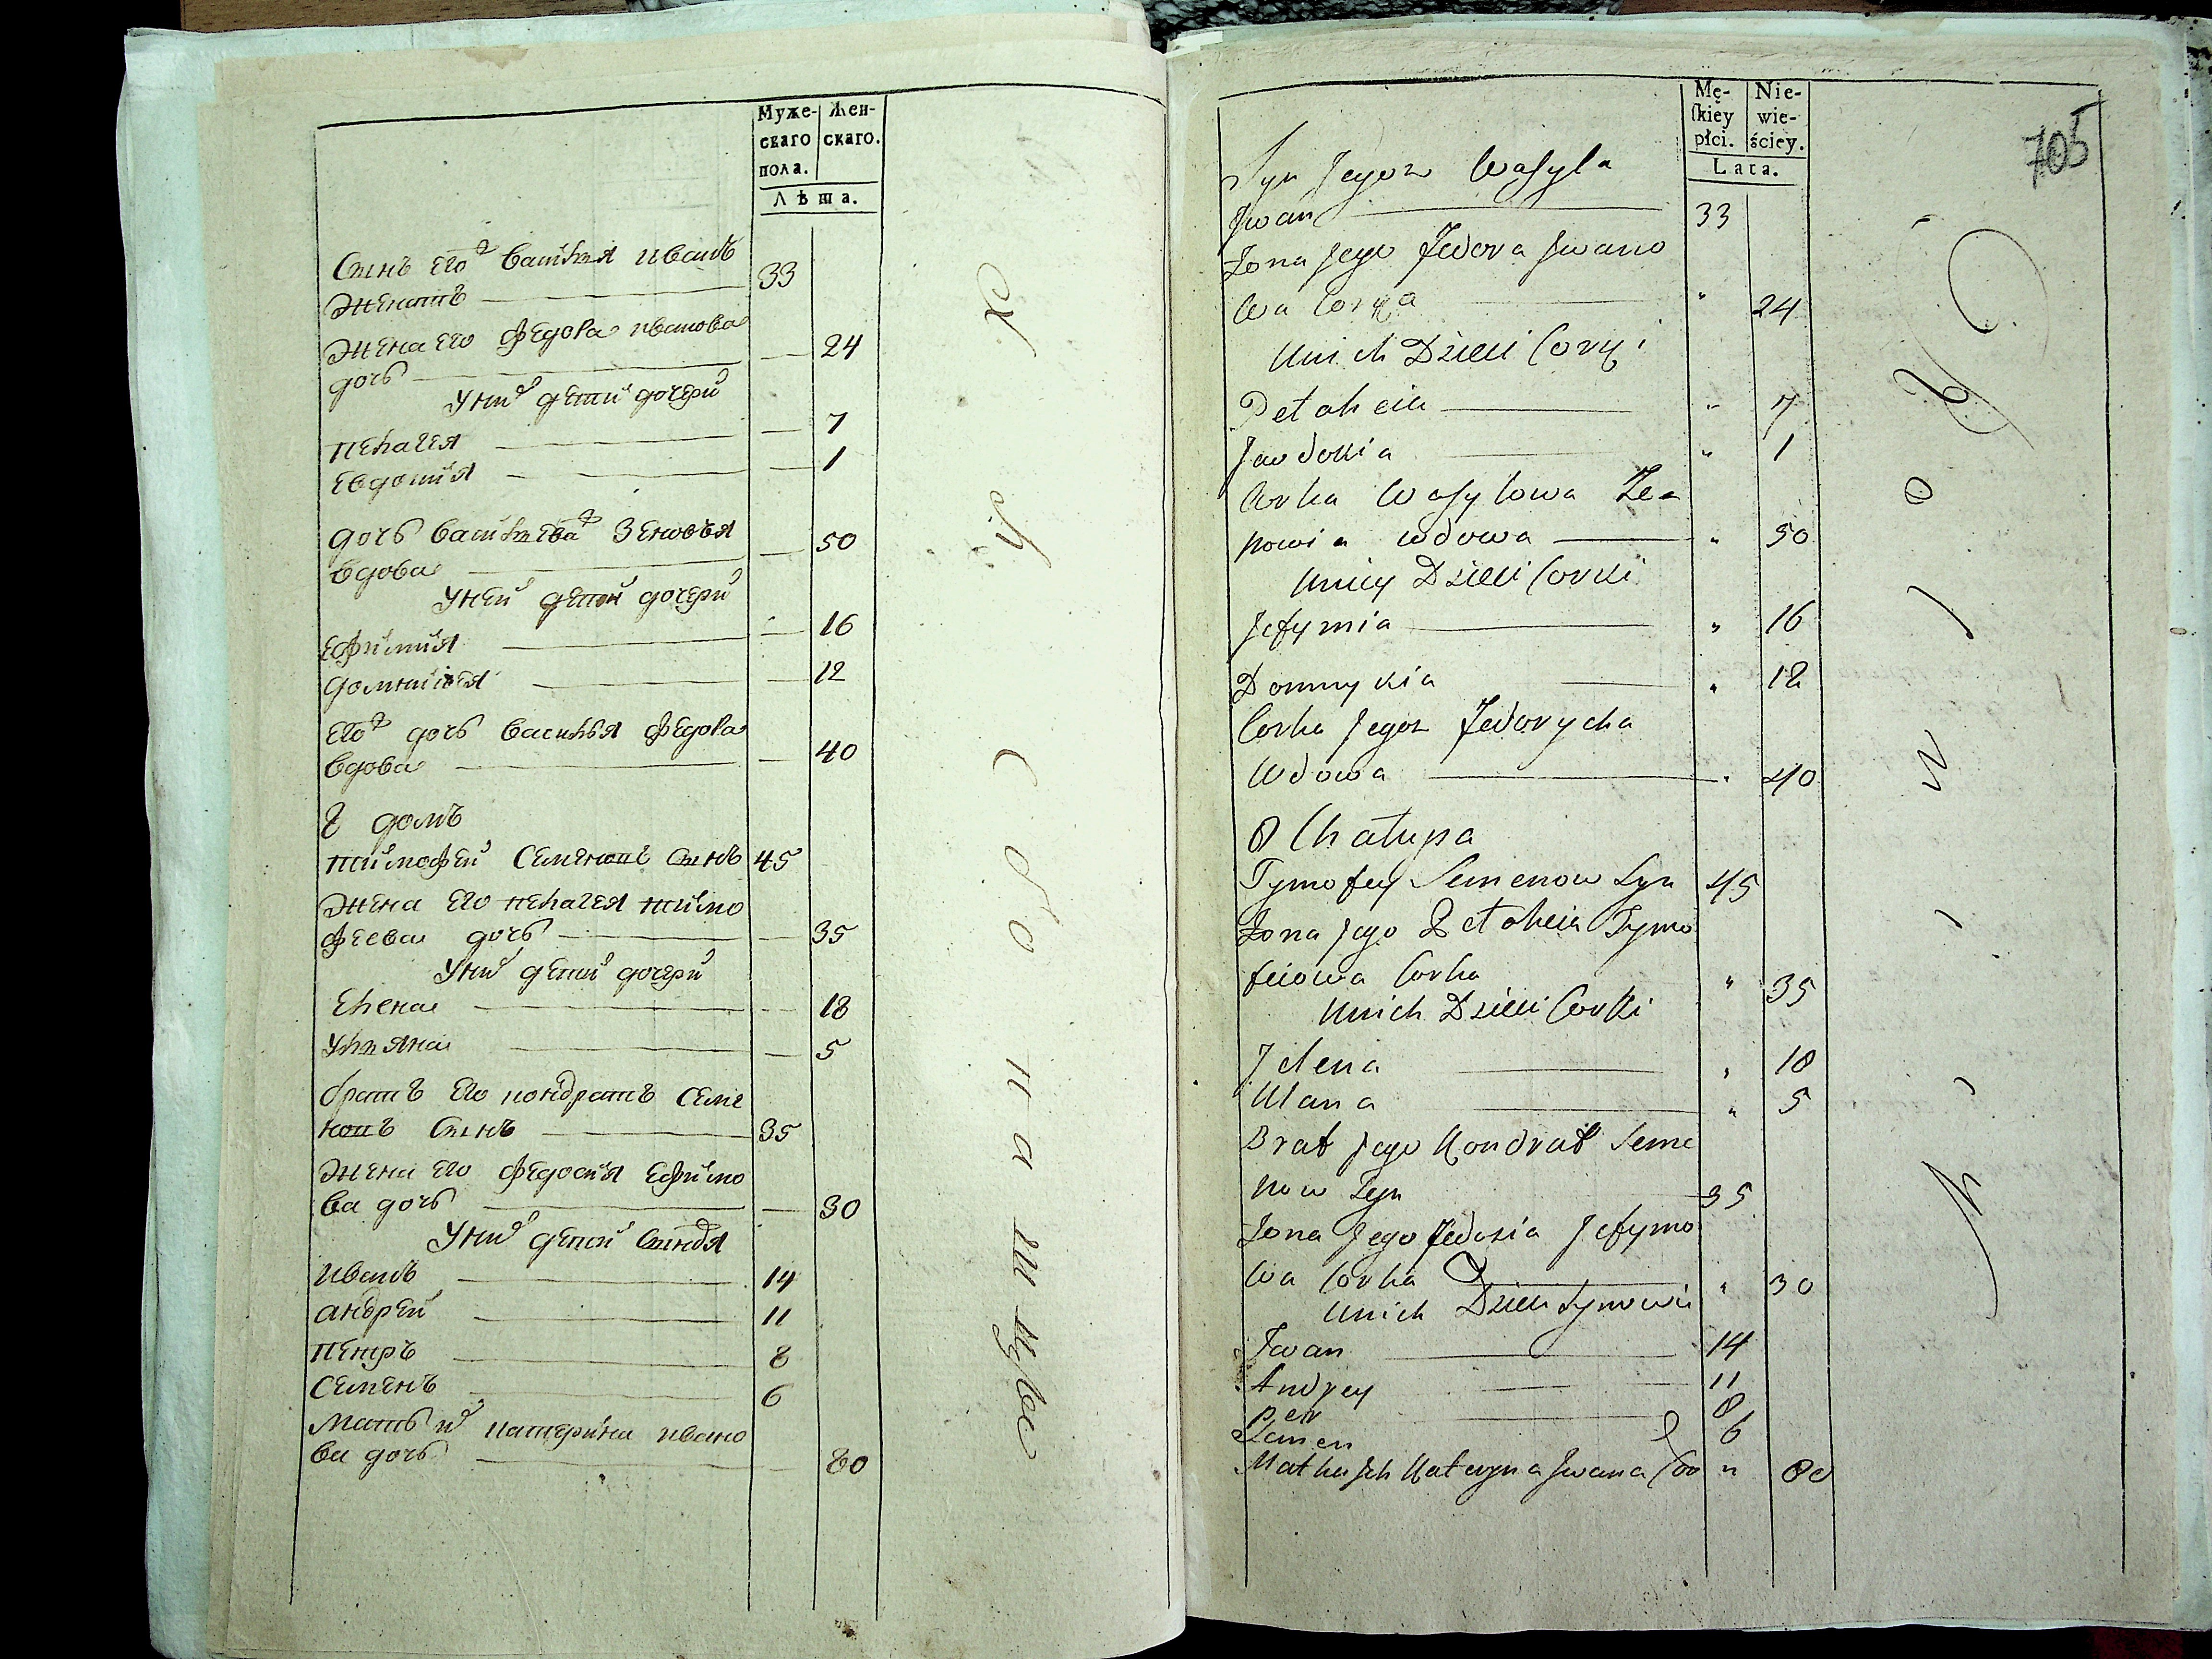 Муже-
скаго
пола.
Жен-
скаго.
Лѣта.
Сынъ его Василья иванъ
женатъ 33
жена его федора иванова
дочь 24
у них дети дочери
пелагея 7
евдокия 1
дочь васильева Зеновья
вдова 50
у ней дети дочери
ефимия 16
домникея 12
его дочь василья федора
вдова 40
8 домъ
тимофей Семеновъ Сынъ 45
жена его пелагея тимо
феева дочь 35
у них дети дочери
елена 18
ульяна 5
братъ его кондратъ семе
новъ Сынъ 35
жена его федосия ефимо
ва дочь 30
у них дети Сыновья
иванъ 14
андрей 11
петръ 8
Семенъ 6
мать их катерина ивано
ва дочь 80
Mę-
ſkiéy
płci.
Nie-
wie-
ściey.
Lata.
705
Syn Jegoz Wasyla
Jwan 33
Żona Jego Fedora Jwano
wa Corka " 24
Unich Dzieci Corki
Pelaheia " 7
Jawdokia " 1
Corka Wasylowa Ze-
nowia wdowa " 50
Uniey Dzieci Corki
Jefymia " 16
Domnykia " 12
Corka Jegoz Fedorycha
Wdowa " 40
8 Chałupa
Tymofey Semenow Syn 45
Żona Jego Pelaheia Tymo
feiowa Corka " 35
Unich Dzieci Corki
Jelena " 18
Ulana " 5
Brat Jego Kondrat Seme
now Syn 35
Żona Jego Fedosia Jefymo
wa Corka " 30
Unich Dzieci Synowie
Iwan 14
Andrey 11
Petr 8
Semen 6
Matka Jch Kateryna Jwana Cor " 80